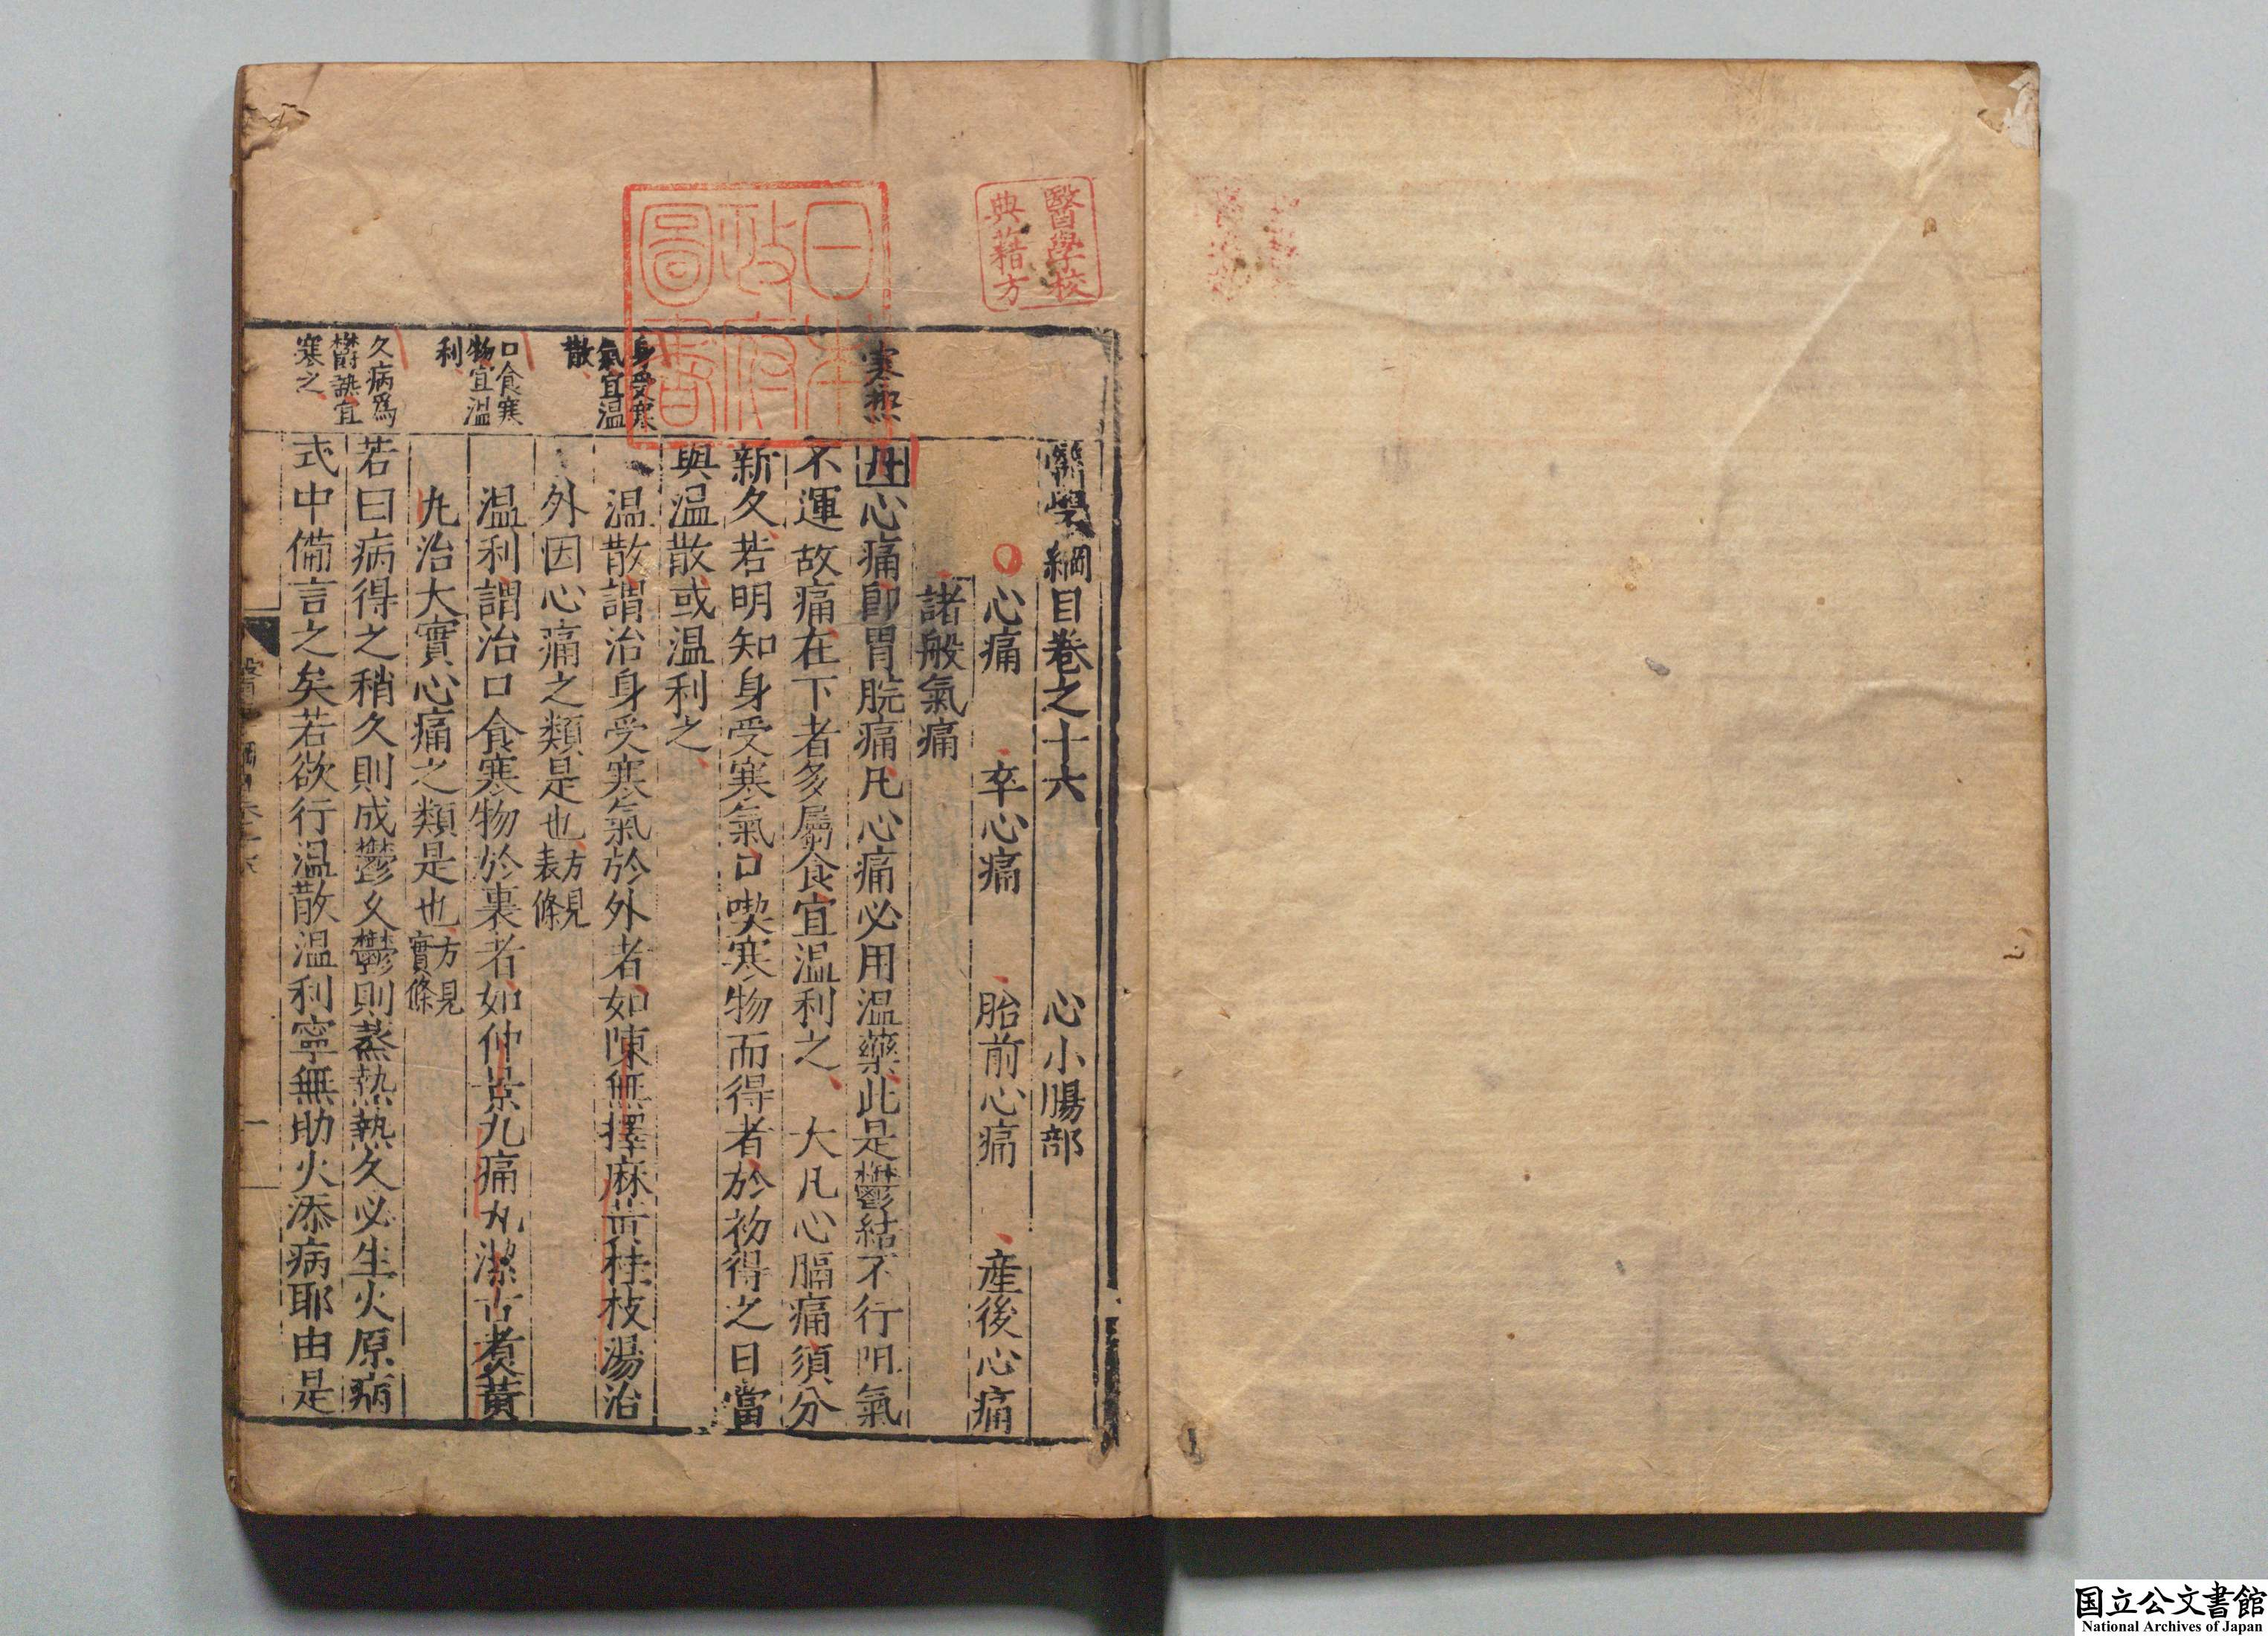 醫學校
典藉方
日本
政府
圖書
醫學綱目卷之十六　心小腸部
心痛　卒心痛　胎前心痛　產後心痛
諸般氣痛
寒熱
丹心痛卽胃脘痛凡心痛必用温藥此是鬱結不行阻氣
不運故痛在下者多屬食宜温利之、大凡心膈痛須分
新久若明知身受寒氣口喫寒物而得者於初得之日當
與温散或温利之
身受寒
氣宜温
散
温散謂治身受寒氣於外者如陳無擇麻黃桂枝湯治
外因心痛之類是也方見
表條
口食寒
物宜温
利
温利謂治口食寒物於裏者如仲景九痛丸潔古煮黃
丸治大實心痛之類是也方見
實條
久病爲
欝熱宜
寒之
若曰病得之稍久則成鬱久鬱則蒸熱熱久必生火原病
式中備言之矣若欲行温散温利寧無助火添病耶由是
一
国立公文書館
National Archives of Japan